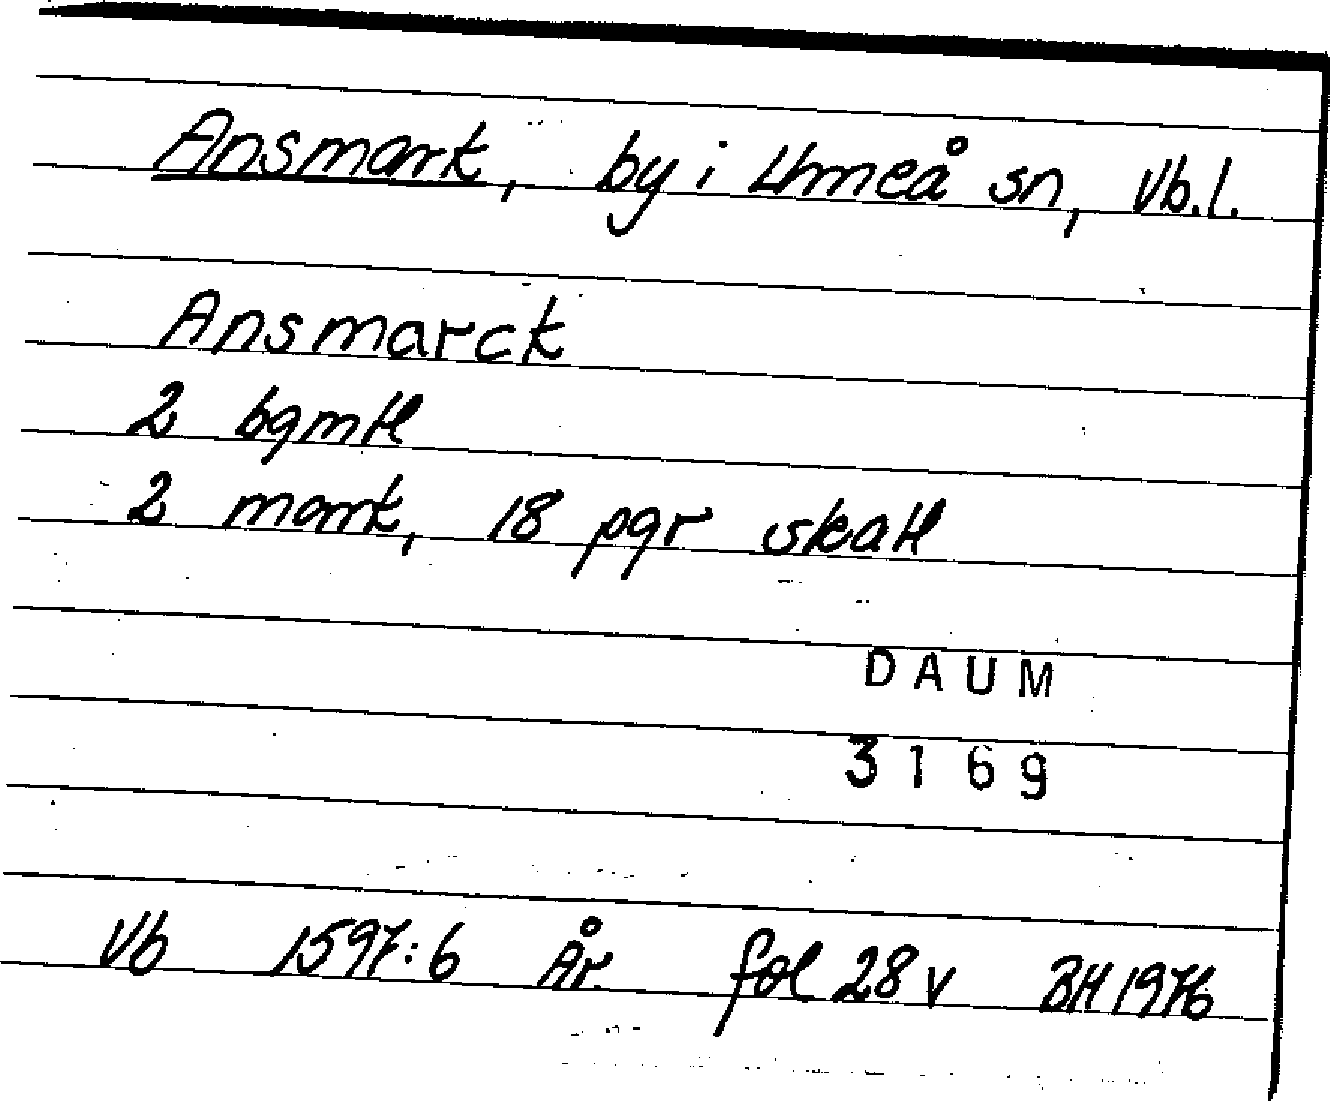 Ansmark, by i Umeå sn, Vb.l.
Ansmarck
2 bgmtl
2 mark, 18 pgr skatt
DAUM
3169
Vb 1597:6 År. fol 28 v BH 1976